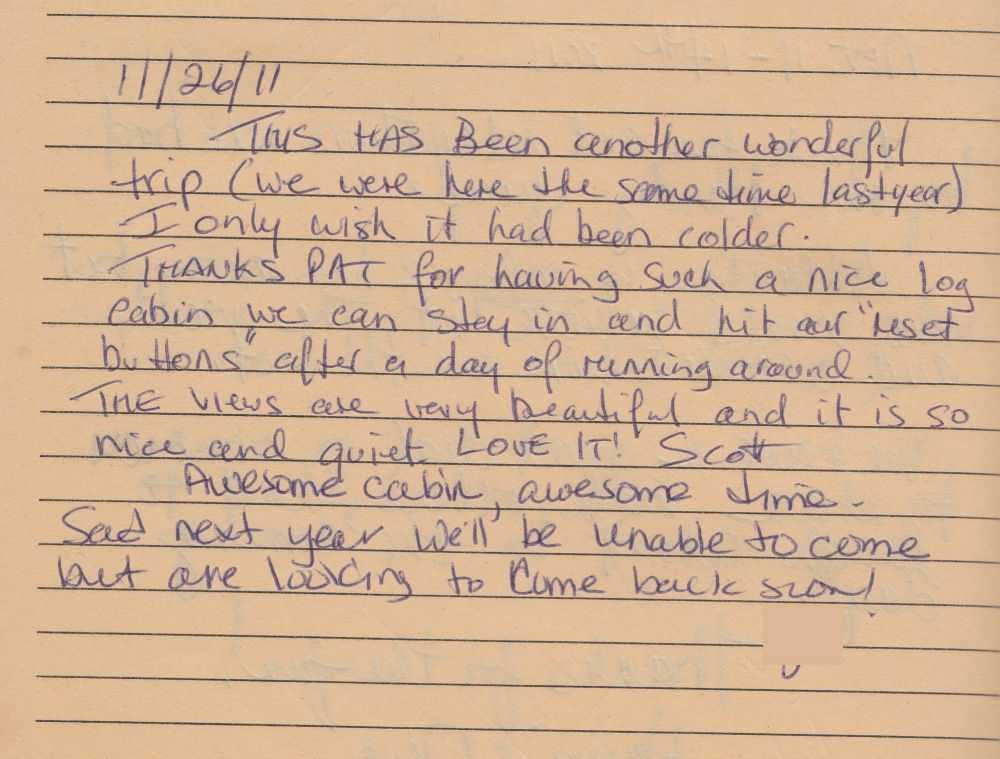 11/26/11
THIS HAS Been another wonderful
trip (we were here the same time last year)
I only wish it had been colder.
THANKS PAT for having such a nice log
cabin we can stay in and hit our "reset
buttons" after a day of running around.
THE views are very beautiful and it is so
nice and quiet. LOVE IT! Scott
Awesome cabin, awesome time.
Sad next year we'll be unable to come
but are looking to come back soon!